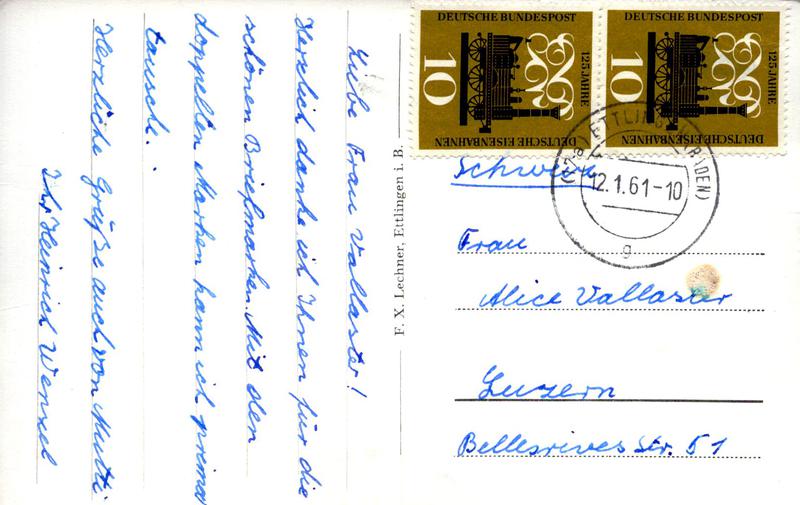 Liebe Frau Vallaster!
Herzlich danke ich Ihnen für die
schönen Briefmarken. Mit den
doppelten Marken kann ich prima
tauschen.
Herzliche Grüße auch von Mutti
Ihr Heinrich Wenzel
F. X. Lechner, Ettlingen i. B.
DEUTSCHE BUNDESPOST
125 JAHRE
10
DEUTSCHE EISENBAHNEN
DEUTSCHE BUNDESPOST
125 JAHRE
10
DEUTSCHE EISENBAHNEN
ETTLINGEN (BADEN)
12.1.61-10
g
Schweiz
Frau
Alice Vallaster
Luzern
Bellerives Str. 51